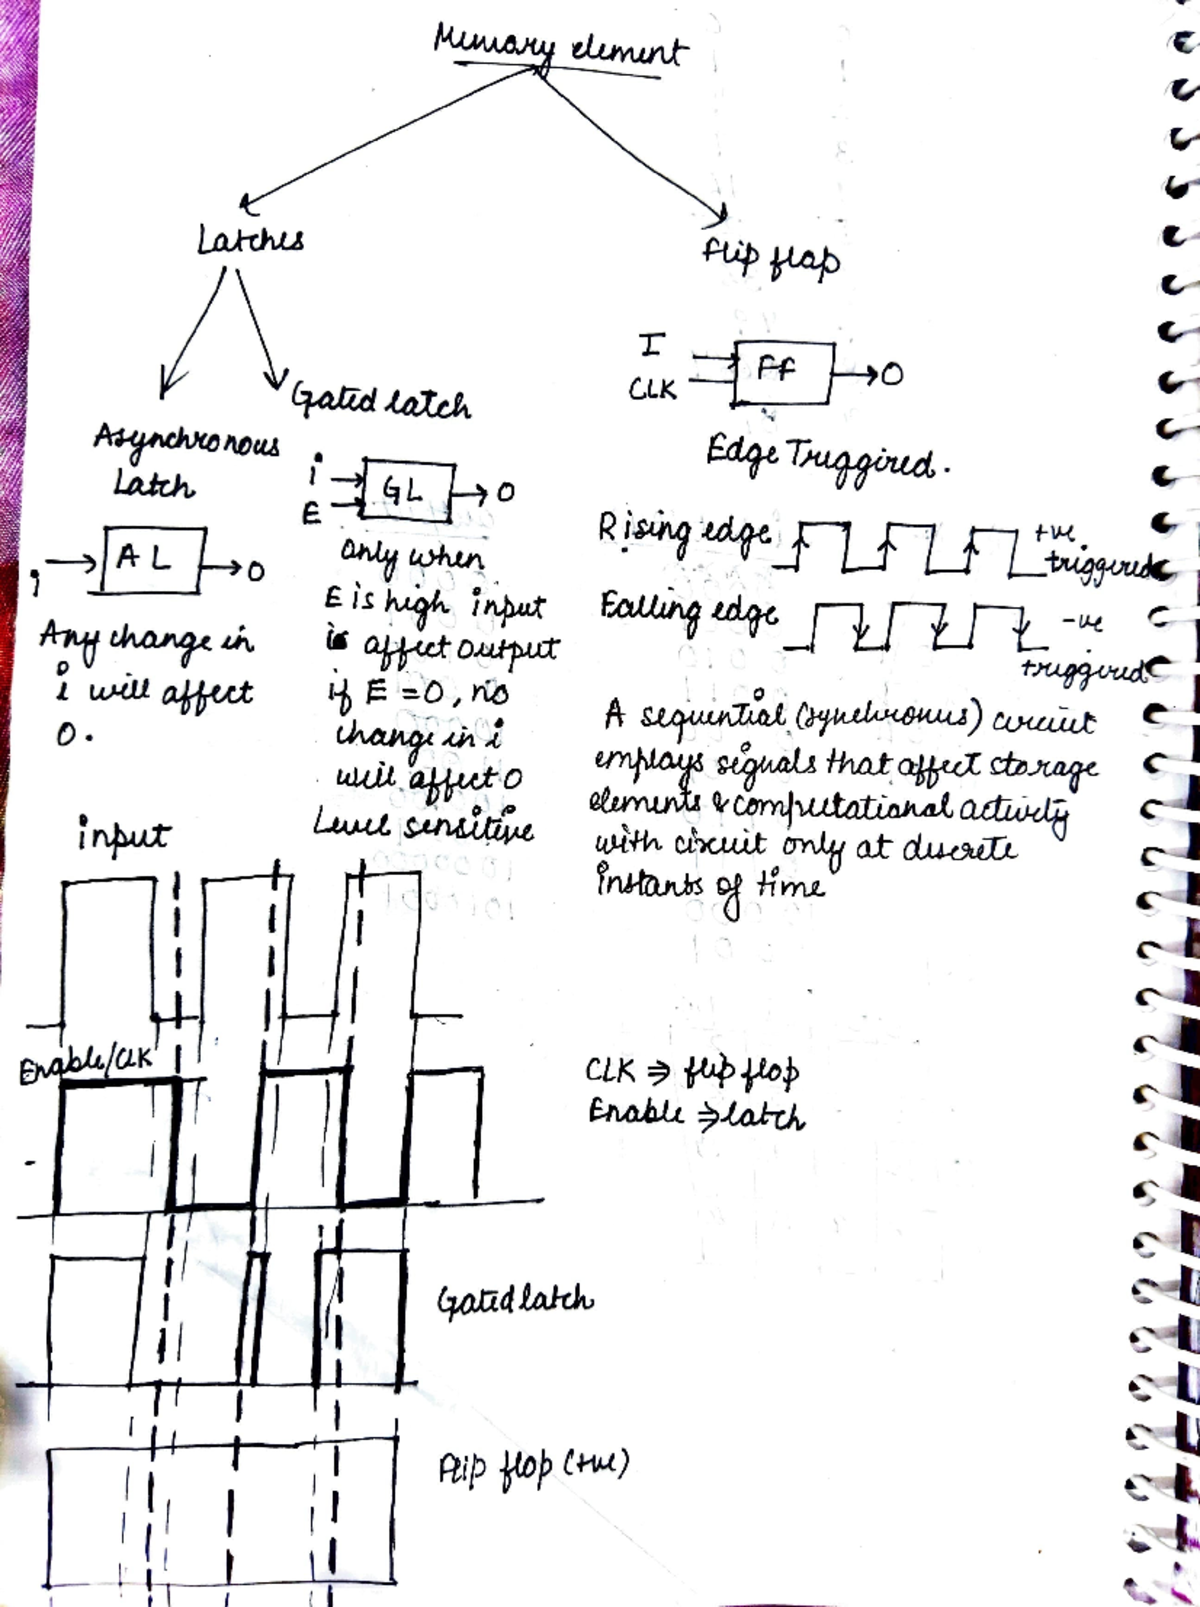 Memory element
Latches
flip flap
Asynchronous
Latch
i
AL
O
Any change in
i will affect
O.
Gated latch
i
E
GL
O
only when
E is high input
is affect output
if E = 0, no
change in i
will affect O
Level sensitive
I
CLK
FF
O
Edge Triggired.
Rising edge
+ve
triggired
Falling edge
-ve
triggired
A sequential (synchronus) circuit
employs signals that affect storage
elements & computational activity
with circuit only at discrete
instants of time
input
Enable/CLK
CLK ⇒ flip flop
Enable ⇒ latch
Gated latch
flip flop (+ve)